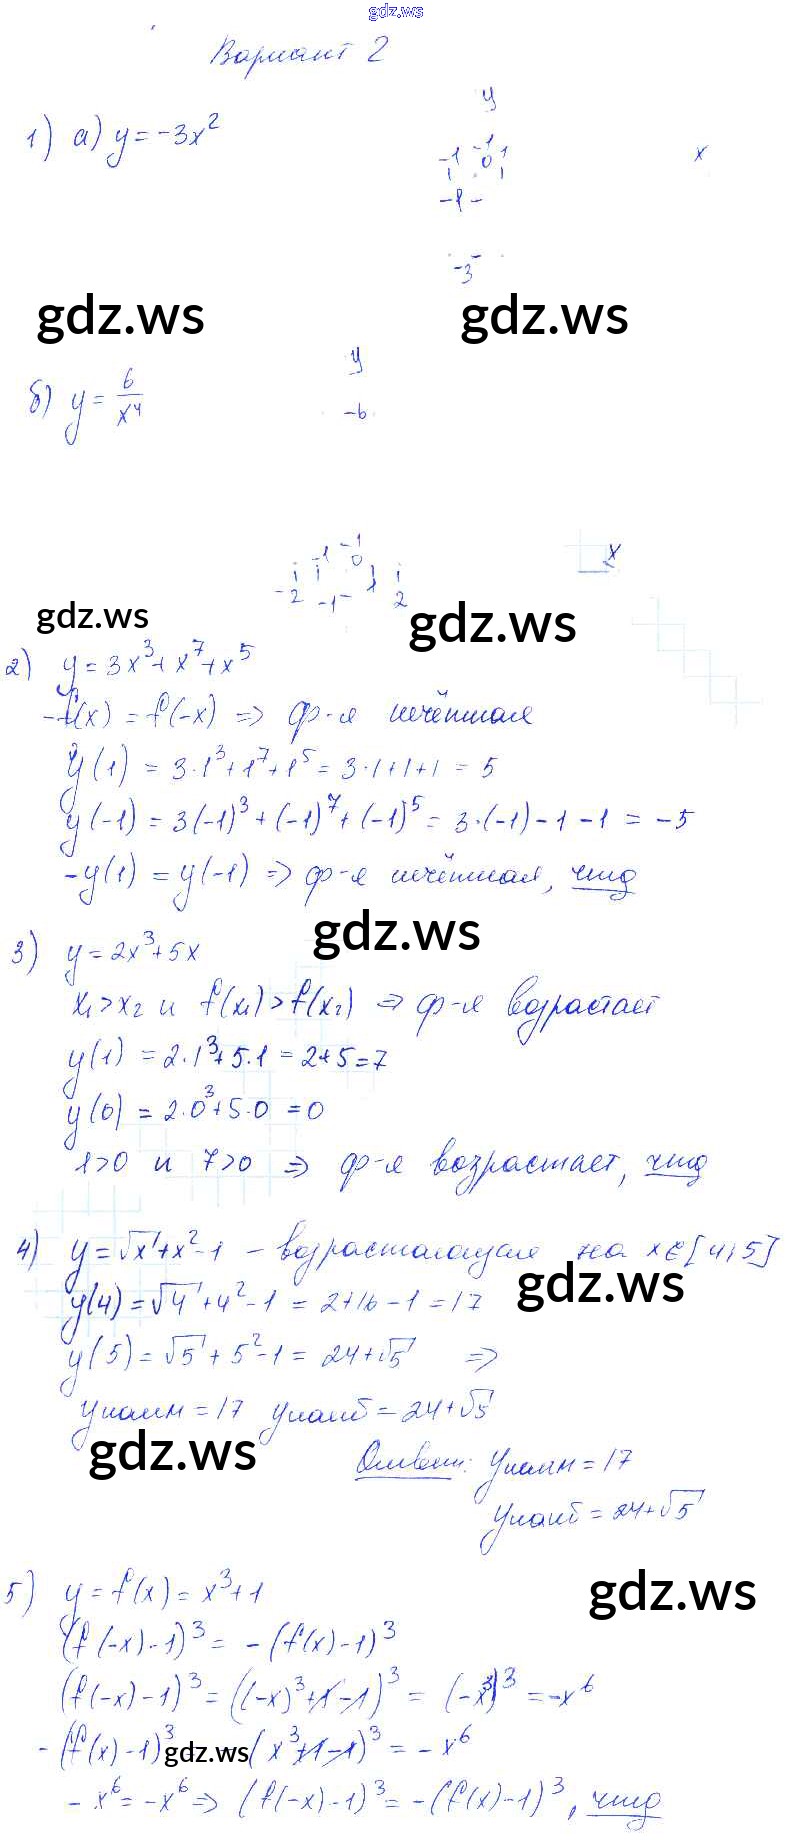 gdz.ws
Вариант 2
1) а) y = -3x²
y
-1 -1 0 1
x
-1 -
-3
gdz.ws gdz.ws
б) y = 6/x⁴
y
-6
-1 -1 0 x
-2 -1 1 2
gdz.ws gdz.ws
2) y = 3x³ + x⁷ + x⁵
-f(x) = f(-x) => ф-я нечётная
y(1) = 3·1³ + 1⁷ + 1⁵ = 3·1+1+1 = 5
y(-1) = 3(-1)³ + (-1)⁷ + (-1)⁵ = 3·(-1) - 1 - 1 = -5
-y(1) = y(-1) => ф-я нечётная, чтд
gdz.ws
3) y = 2x³ + 5x
x₁ > x₂ и f(x₁) > f(x₂) => ф-я возрастает
y(1) = 2·1³ + 5·1 = 2+5 = 7
y(0) = 2·0³ + 5·0 = 0
1>0 и 7>0 => ф-я возрастает, чтд
4) y = √x + x² - 1 - возрастающая на x∈[4;5]
gdz.ws
y(4) = √4 + 4² - 1 = 2+16-1 = 17
y(5) = √5 + 5² - 1 = 24+√5 =>
yнаим = 17 yнаиб = 24+√5
gdz.ws
Ответ: yнаим = 17
yнаиб = 24+√5
5) y = f(x) = x³ + 1
gdz.ws
(f(-x) - 1)³ = -(f(x) - 1)³
(f(-x) - 1)³ = ((-x)³ + 1 - 1)³ = (-x³)³ = -x⁶
-(f(x) - 1)³ = -(x³ + 1 - 1)³ = -x⁶
gdz.ws
-x⁶ = -x⁶ => (f(-x) - 1)³ = -(f(x) - 1)³, чтд